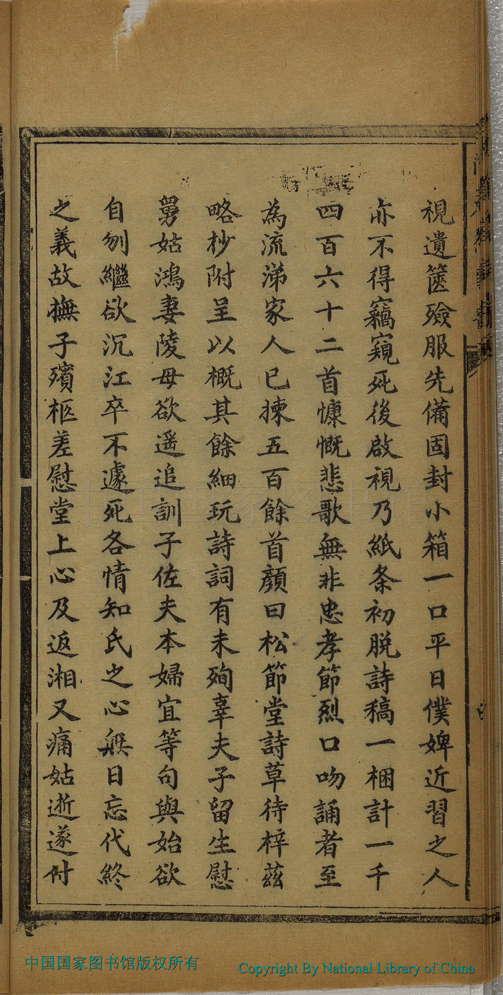 視遺篋殮服先備固封小箱一口平日僕婢近習之人
亦不得竊窺死後啟視乃紙条初脫詩稿一梱計一千
四百六十二首慷慨悲歌無非忠孝節烈口吻誦者至
為流涕家人已揀五百餘首顏曰松節堂詩草待梓茲
略杪附呈以概其餘細玩詩詞有未殉辜夫子留生慰
舅姑鴻妻陵母欲遥追訓子佐夫本婦宜等句與始欲
自刎繼欲沉江卒不遽死各情知氏之心無日忘代終
之義故撫子殯柩差慰堂上心及返湘又痛姑逝遂付
中国国家图书馆版权所有
Copyright By National Library of China